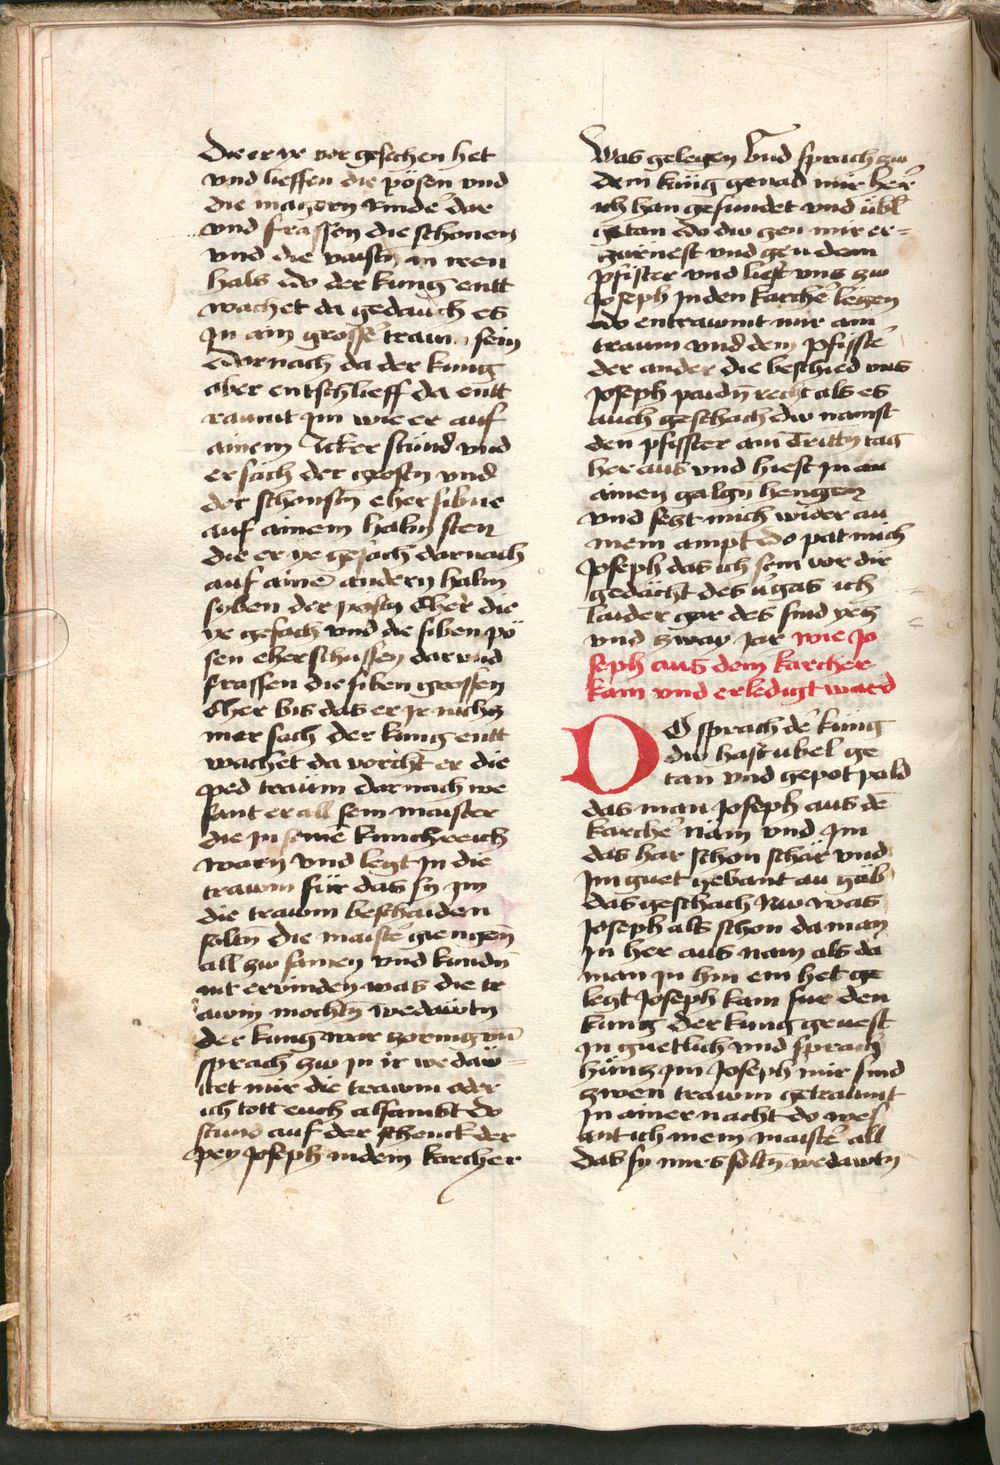 Die er ye vor gesechen het
vnd lieffen die pösen vnd
die magern Rinder dar
vnd frassen die schonen
vnd die vaistn in iren
hals Do der kung entt
wachet da gedauch es
Jn ain grosser traum sein
Darnach da der kung
aber entschlieff da entt
raumt Jm wie er auf
ainem Acker stünd vnd
er sach der grostn vnd
der schonstn eher sibne
auf ainem halm sten
die er ye gesach darnach
auf aine andern halm
syben der postn Eher die
ye gesach vnd die siben pö
sen eher schussen dar vnd
frassen die siben grossen
Eher bis das er Jr nichz
mer sach der kung entt
wachet da vorcht er die
ped traüm dar nach we
sant er all sein maister
die Jn seine kunchreich
warn vnd legt Jn die
trawm für das sy Jm
die trawm beschaiden
soltn Die maiste giengen
all zw samen vnd kundn
nit ervinden was die tr
awm mochtn wedawtn
der kung war zornig vn
sprach zw in ir wedaw=
ttet mir die trawm oder
ich tott euch alsambt do
stund auf der schenck der
pey Joseph in dem karcher
Was gelegen vnd sprach zw
dem küng genad mir her
ich han gesundet vnd übl
getan do dw gen mir er=
zürnest vnd gen dem
pfister vnd liest vns zw
Joseph Jn den karche legen
do entrawmt mir ain
traum vnd dem pfiste
der ander die beschied vns
Joseph paidn recht als es
auch geschach dw namst
den pfisster am Trittn tag
her aus vnd hiest Jn an
ainen galgn hengen
vnd sezt mich wider an
mein ampt do pat mich
Joseph das ich sein vor dir
gedächt des v'gas ich
laider gar des sind yez
vnd zway Jar wie Jo
seph aus dem karcher
kam vnd erledigt ward
DO sprach de küng
dw hast ubel ge
tan vnd gepot pald
das man Joseph aus de
karche näm vnd Jm
das har schon schär vnd
Jm guet gebant an gäb
das geschach Nw was
Joseph als schon da man
Jn her aus nam als da
man Jn hin ein het ge
legt Joseph kam fur den
kunig der kung gruest
Jn guetlich vnd sprach
hünz Jm Joseph mir sind
zwen trawm getraumt
Jn ainer nacht do wes
ant ich mein maiste all
das sy mirs soltn wedawtn